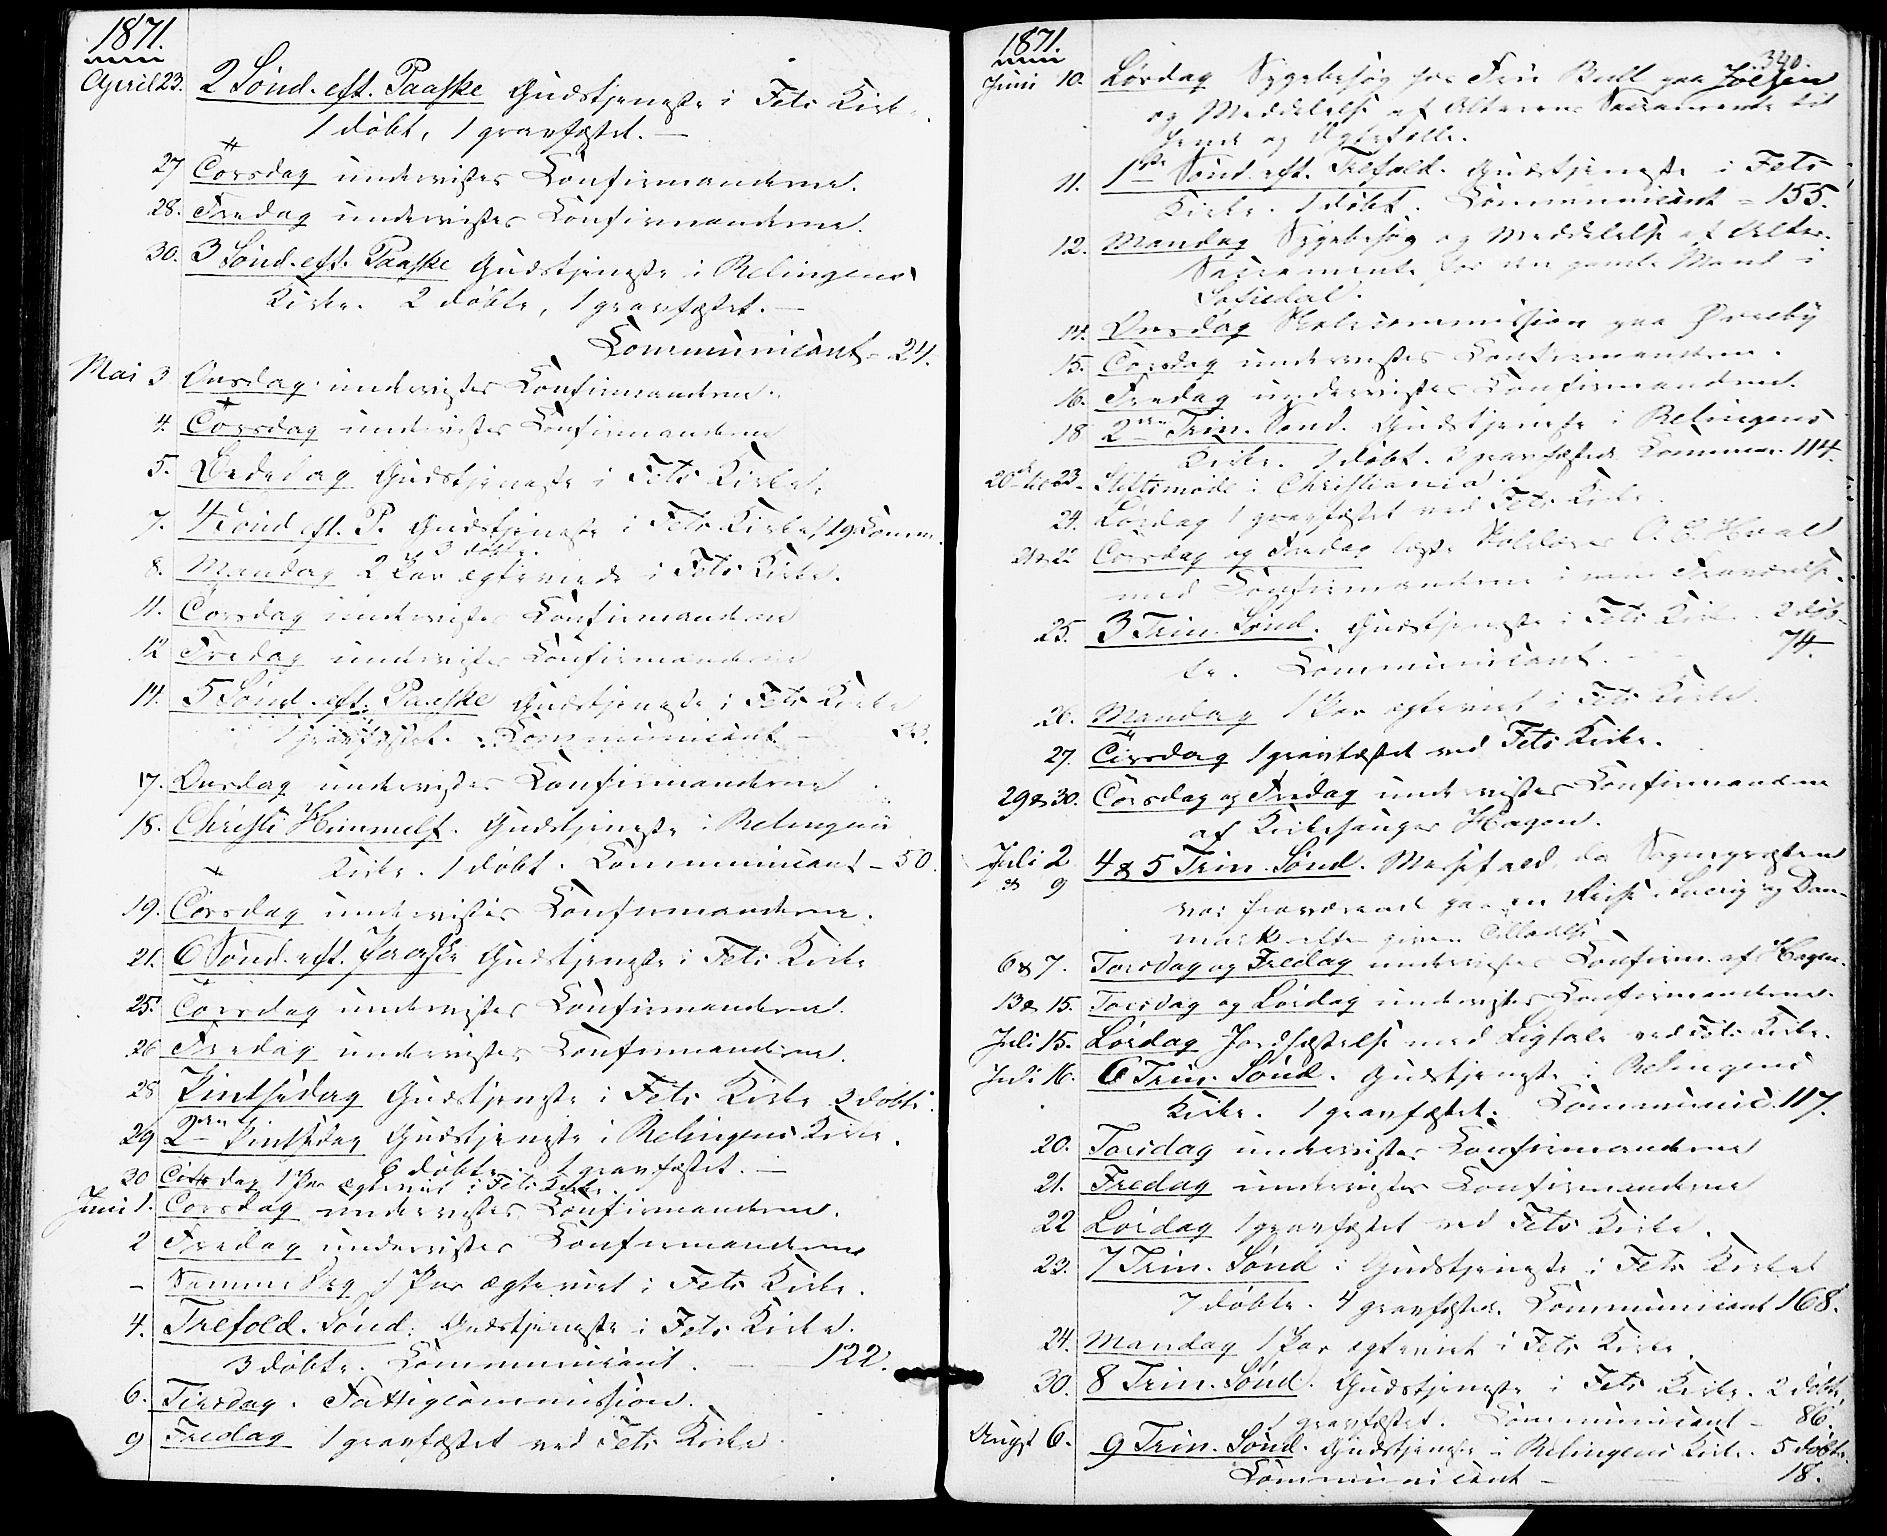 1871.
April 23. 2 Sönd. eft. Paaske Gudstjeneste i Fets Kirke.
1 döbt, 1 gravfæstet. —
27 Torsdag undervistes Confirmanderne.
28. Fredag undervistes Confirmanderne.
30. 3 Sönd. eft. Paaske Gudstjeneste i Relingens
Kirke. 2 döbte, 1 gravfæstet. —
Communicant. 24.
Mai 3 Onsdag undervistes Confirmanderne.
4. Torsdag undervistes Confirmanderne
5. Bededag Gudstjeneste i Fets Kirke.
7. 4 Sönd. eft. P. Gudstjeneste i Fets Kirke, 19 Commun.
3 döbte.
8. Mandag 2 Par ægteviede i Fets Kirke.
11. Torsdag undervistes Confirmanderne
12 Fredag undervistes Confirmanderne
14. 5 Sönd. eft. Paaske Gudstjeneste i Fets Kirke
1 gravfæstet. Communicant — 23.
17. Onsdag undervistes Confirmanderne
18. Christi Himmelf. Gudstjeneste i Relingens
Kirke. 1 döbt. Communicant — 50.
19. Torsdag undervistes Confirmanderne.
21. 6 Sönd. eft. Paaske Gudstjeneste i Fets Kirke
25. Torsdag undervistes Confirmanderne.
26 Fredag undervistes Confirmanderne.
28 Pintsedag Gudstjeneste i Fets Kirke 2 döbte.
29 2den Pintsedag Gudstjeneste i Relingens Kirke.
6 döbte. 1 gravfæstet. —
30 Tirsdag 1 Par ægteviet i Fets Kirke.
Juni 1. Torsdag undervistes Confirmanderne.
2 Fredag undervistes Confirmanderne
– Samme Dag 1 Par ægteviet i Fets Kirke.
4. Trefold. Sönd. Gudstjeneste i Fets Kirke.
3 döbte. Communicant. — 122.
6. Tirsdag. Fattigcommission.
9 Fredag 1 gravfæstet ved Fets Kirke.
1871.
340.
Juni 10. Lördag Sygebesög hos Fru Bull paa
og Meddelelse af Alterens Sacramente til
hende og Ægtefælle.
11. 1ste Sönd. eft. Trefold. Gudstjeneste i Fets
Kirke. 1 döbt. Communicant – 155.
12. Mandag Sygebesög og Meddelelse af Alter.
Sacramente for en gamle Mand i
Sofiedal.
14. Onsdag Skolecommission paa
15. Torsdag undervistes Confirmanderne.
16. Fredag undervistes Confirmanderne.
18 2den Trin. Sönd. Gudstjeneste i Relingens
Kirke. 1 döbt. 2 gravfæstede Commun. 114.
20de til 23. Stiftsmöde i Christiania.
24. Lördag 1 gravfæstet ved Fets Kirke.
21 & 22 Torsdag og Fredag læste Skolelærer O. E. Hval
med Confirmanderne i min Fraværelse.
25. 3 Trin. Sönd. Gudstjeneste i Fets Kirke. 2 döb-
te. Communicant. — 74.
26. Mandag 1 Par ægteviet i Fets Kirke.
27. Tirsdag 1 gravfæstet ved Fets Kirke.
29 & 30. Torsdag og Fredag undervistes Confirmanderne
af Kirkesanger Hagen.
Juli 2 & 9 4 & 5 Trin. Sönd. Messefald, da Sognepræsten
var fraværende paa en Reise i Sverig og Dan-
mark efter given Tilladelse
6 & 7. Torsdag og Fredag undervistes Confirm. af Hagen.
13 & 15. Torsdag og Lördag undervistes Confirmanderne.
Juli 15. Lördag Jordfæstelse med Ligtale ved Fets Kirke.
Juli 16. 6 Trin. Sönd. Gudstjeneste i Relingens
Kirke. 1 gravfæstet. Communic. 117.
20. Torsdag undervistes Confirmanderne
21. Fredag undervistes Confirmanderne
22 Lördag 1 gravfæstet ved Fets Kirke.
23. 7 Trin. Sönd. Gudstjeneste i Fets Kirke
7 döbte. 4 gravfæstede. Communicant 168.
24. Mandag 1 Par ægteviet i Fets Kirke.
30. 8 Trin. Sönd. Gudstjeneste i Fets Kirke. 2 döbte,
1 gravfæstet. Communicant – 86.
Augst 6. 9 Trin. Sönd. Gudstjeneste i Relingens Kirke. 5 döbte.
Communicant – 18.